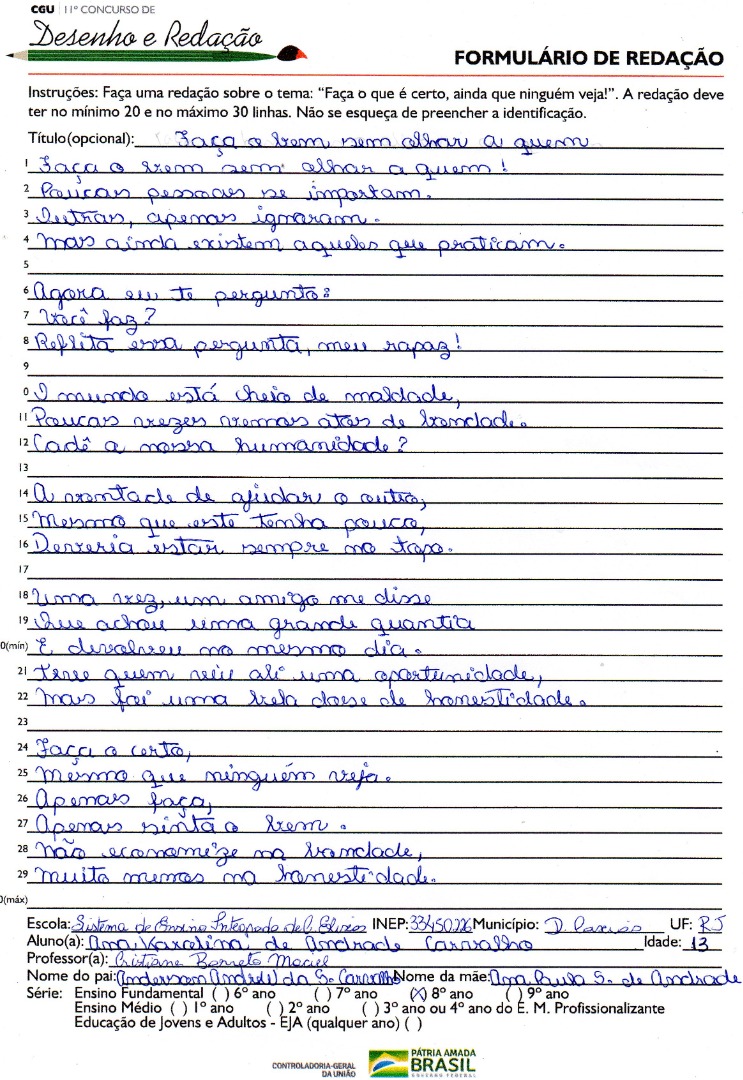 CGU | 11º CONCURSO DE
Desenho e Redação
FORMULÁRIO DE REDAÇÃO
Instruções: Faça uma redação sobre o tema: “Faça o que é certo, ainda que ninguém veja!”. A redação deve
ter no mínimo 20 e no máximo 30 linhas. Não se esqueça de preencher a identificação.
Título(opcional): Faça o bem sem olhar a quem
1 Faça o bem sem olhar a quem!
2 Poucas pessoas se importam.
3 Outras, apenas ignoram.
4 Mas ainda existem aqueles que praticam.
5
6 Agora eu te pergunto:
7 Você faz?
8 Reflita essa pergunta, meu rapaz!
9
0 O mundo está cheio de maldade,
11 Poucas vezes vemos atos de bondade.
12 Cadê a nossa humanidade?
13
14 A vontade de ajudar o outro,
15 Mesmo que este tenha pouco,
16 Deveria estar sempre no topo.
17
18 Uma vez, um amigo me disse
19 Que achou uma grande quantia
0(min) E devolveu no mesmo dia.
21 Teve quem viu ali uma oportunidade,
22 Mas foi uma bela dose de honestidade.
23
24 Faça o certo,
25 Mesmo que ninguém veja.
26 Apenas faça,
27 Apenas sinta o bem.
28 Não economize na bondade,
29 Muito menos na honestidade.
0(máx)
Escola: Sistema de Ensino Integrado del. Elixis INEP: 33450226 Município: D. Caxias UF: RJ
Aluno(a): Ana Karolina de Andrade Carvalho Idade: 13
Professor(a): Cristiane Barreto Maciel
Nome do pai: Anderson da S. Carvalho Nome da mãe: Ana Paula S. de Andrade
Série: Ensino Fundamental ( ) 6º ano ( ) 7º ano (X) 8º ano ( ) 9º ano
Ensino Médio ( ) 1º ano ( ) 2º ano ( ) 3º ano ou 4º ano do E. M. Profissionalizante
Educação de Jovens e Adultos - EJA (qualquer ano) ( )
CONTROLADORIA-GERAL
DA UNIÃO
PÁTRIA AMADA
BRASIL
GOVERNO FEDERAL